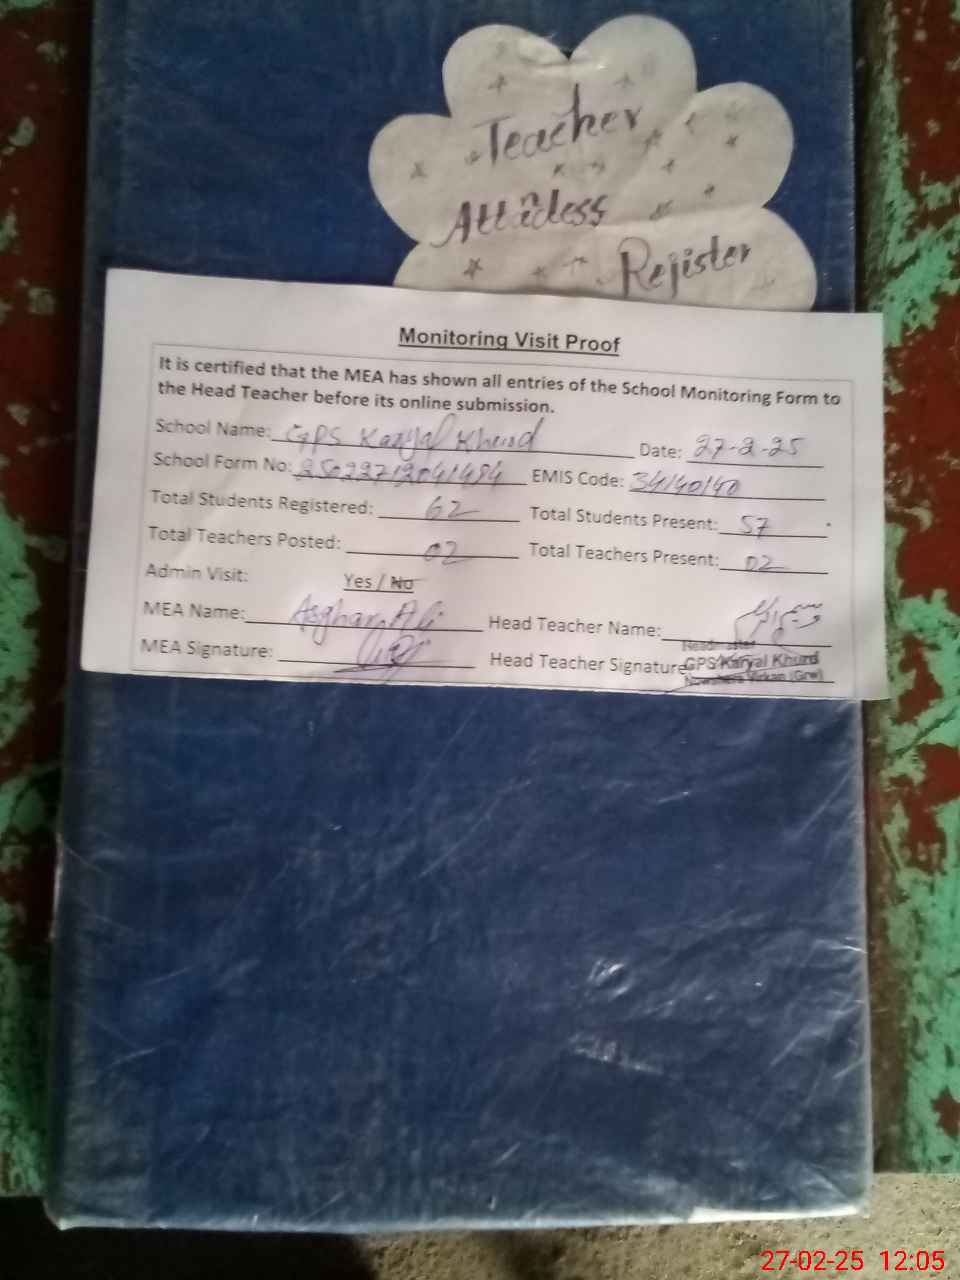 Teacher
Attidess
Rejister
Monitoring Visit Proof
It is certified that the MEA has shown all entries of the School Monitoring Form to
the Head Teacher before its online submission.
School Name: GPS Karyal Khurd Date: 27-2-25
School Form No: EMIS Code: 34140140
Total Students Registered: 62 Total Students Present: 57
Total Teachers Posted: 02 Total Teachers Present: 02
Admin Visit: Yes / No
MEA Name: Asghar Ali Head Teacher Name:
MEA Signature: Head Teacher Signature
GPS Karyal Khurd
Virkan (Grw)
27-02-25 12:05